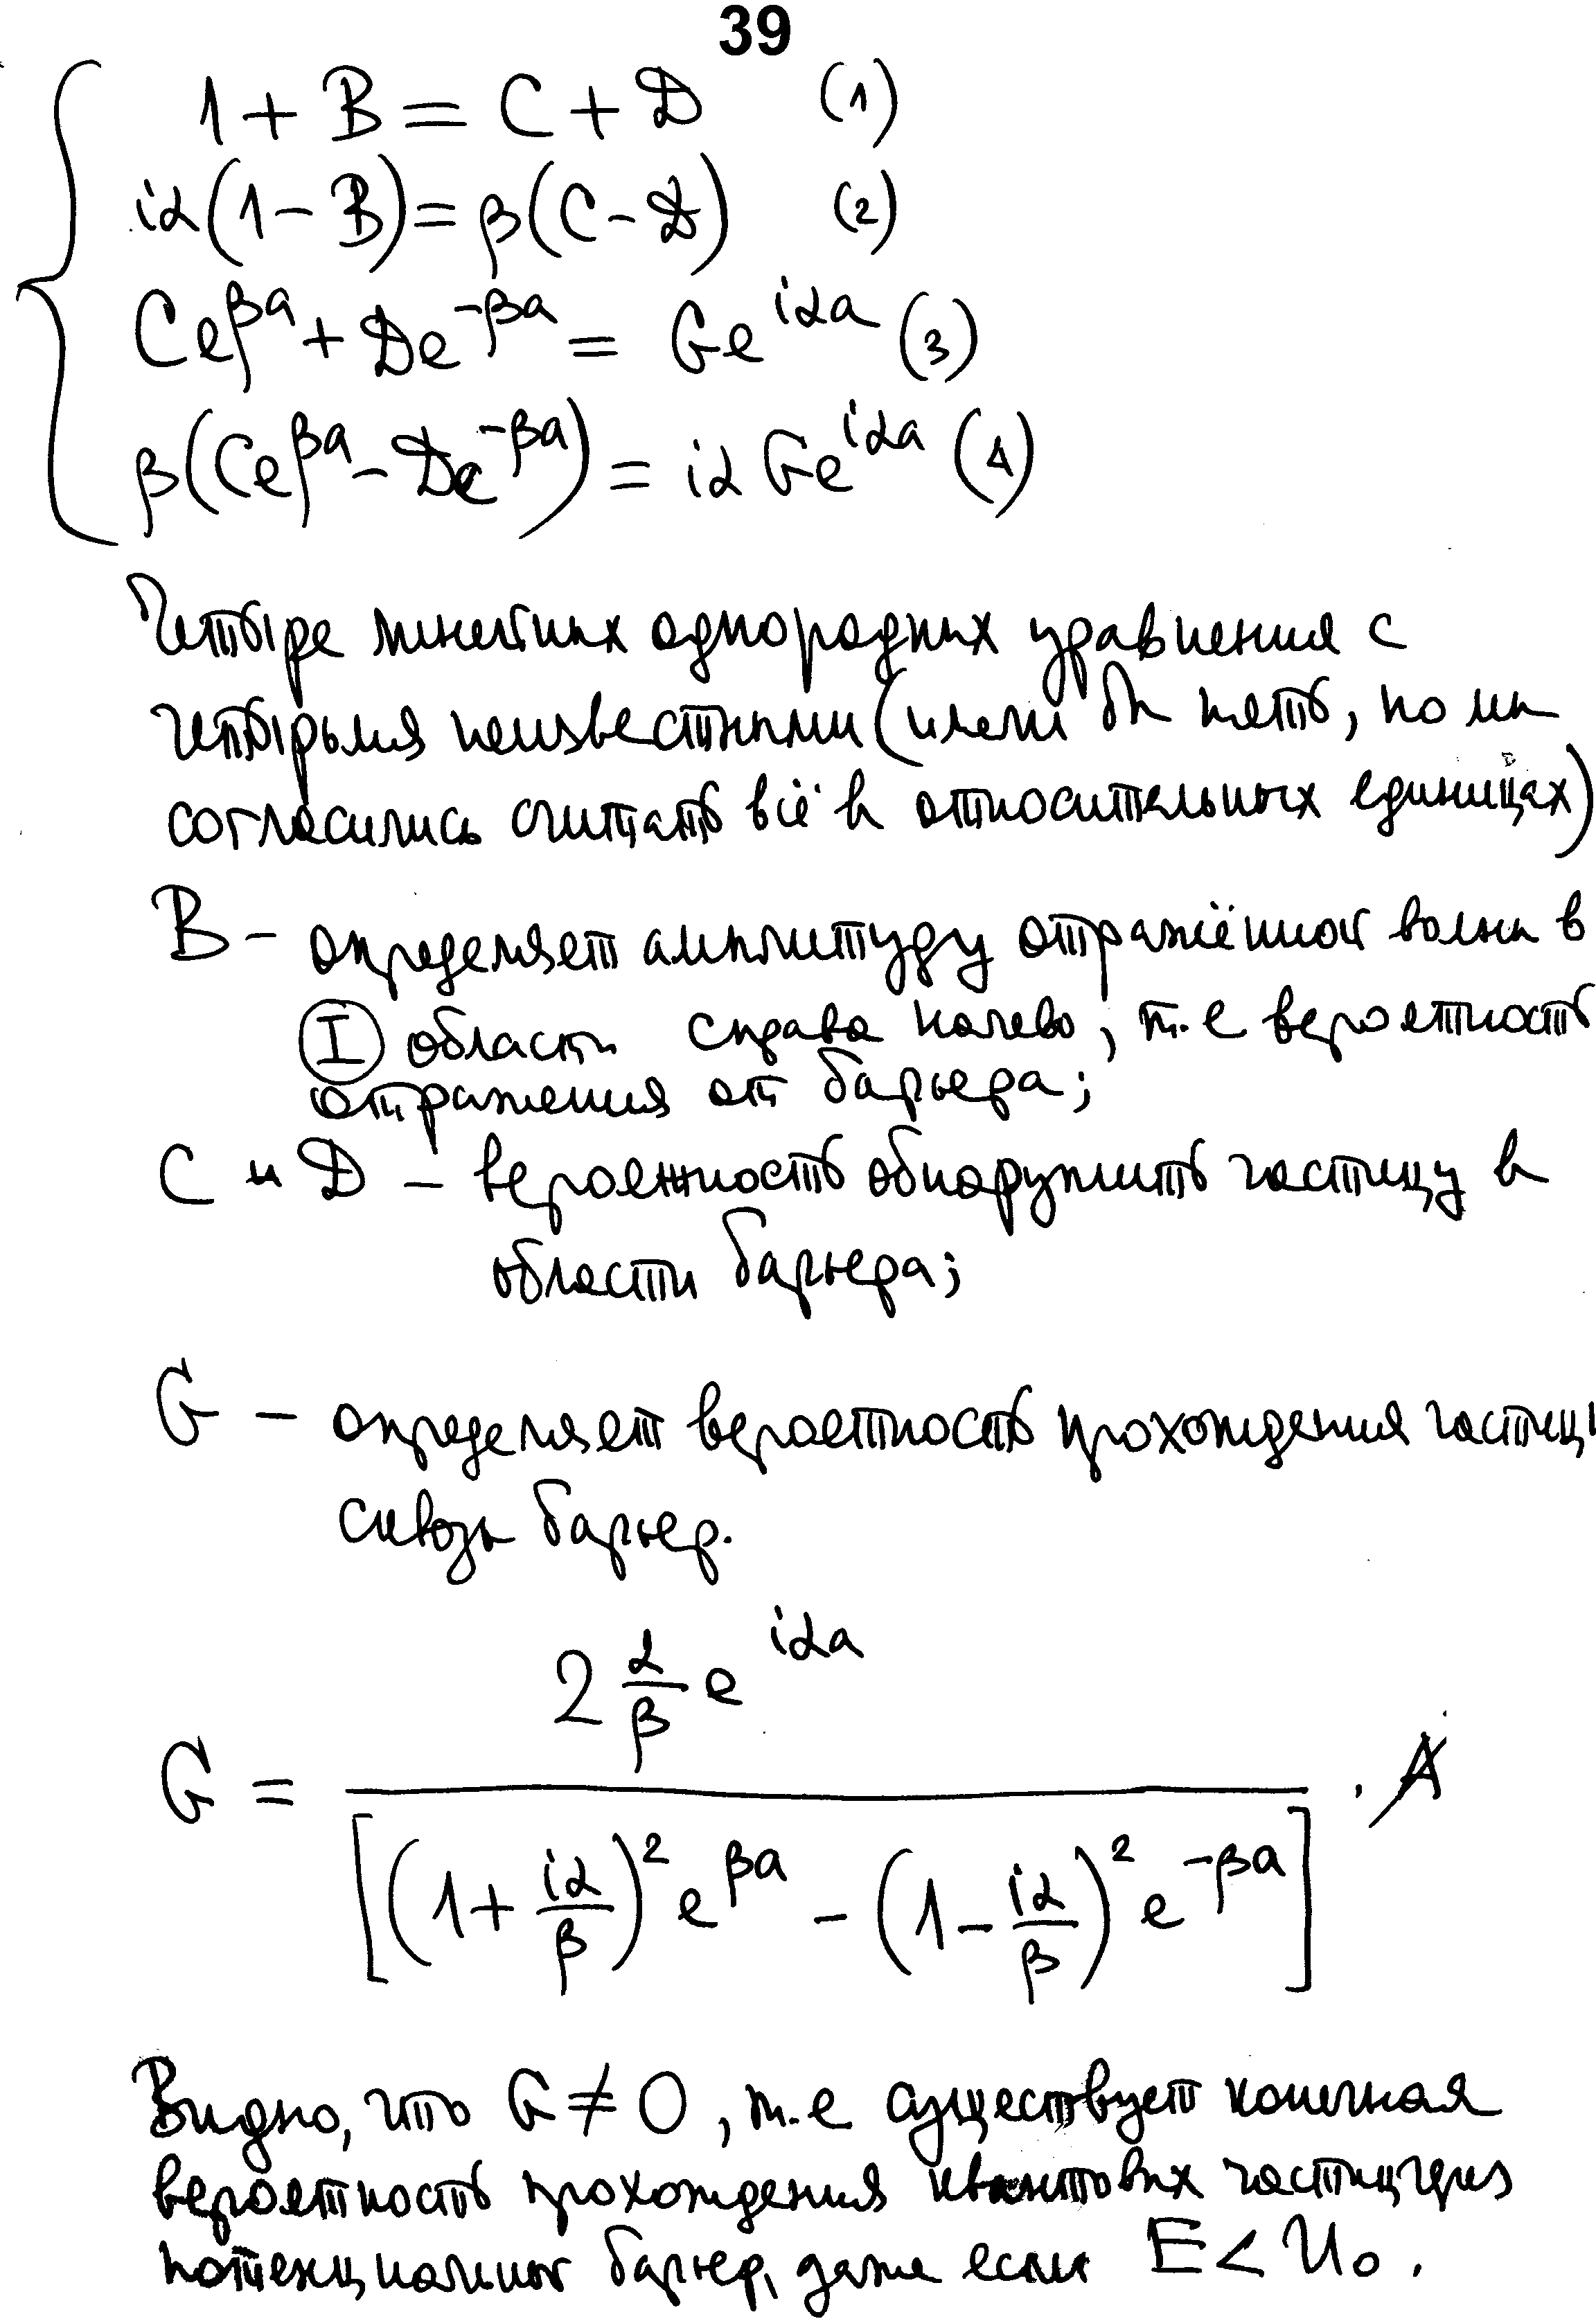 39
1 + B = C + D (1)
iα(1 - B) = β(C - D) (2)
Ce^{βa} + De^{-βa} = Ge^{iαa} (3)
β(Ce^{βa} - De^{-βa}) = iαGe^{iαa} (4)
Четыре линейных однородных уравнения с
четырьмя неизвестными (имели бы пять, но мы
согласились считать всё в относительных единицах)
B - определяет амплитуду отражённой волны в
I области справа налево, т.е вероятность
отражения от барьера;
C и D - вероятность обнаружить частицу в
области барьера;
G - определяет вероятность прохождения частицы
сквозь барьер.
2 α/β e^{iαa}
G = ———— · A
[(1 + iα/β)² e^{βa} - (1 - iα/β)² e^{-βa}]
Видно, что G ≠ 0, т.е существует конечная
вероятность прохождения квантовых частиц через
потенциальный барьер, даже если E < U₀.